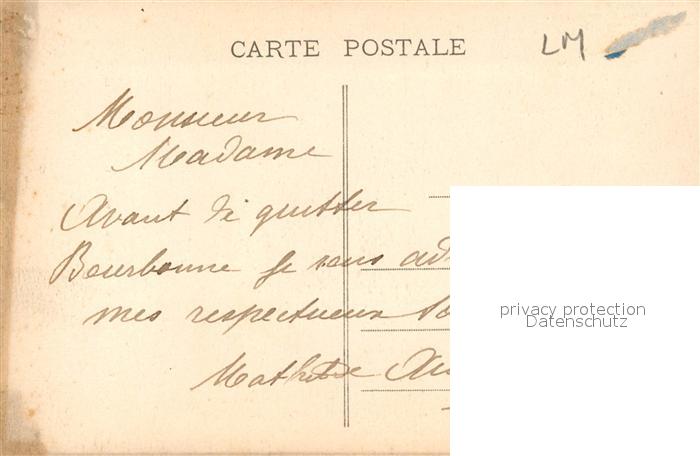 CARTE POSTALE
LM
Monsieur
Madame
Avant de quitter
Bourbonne je vous
mes respectueux
Mathilde
privacy protection
Datenschutz